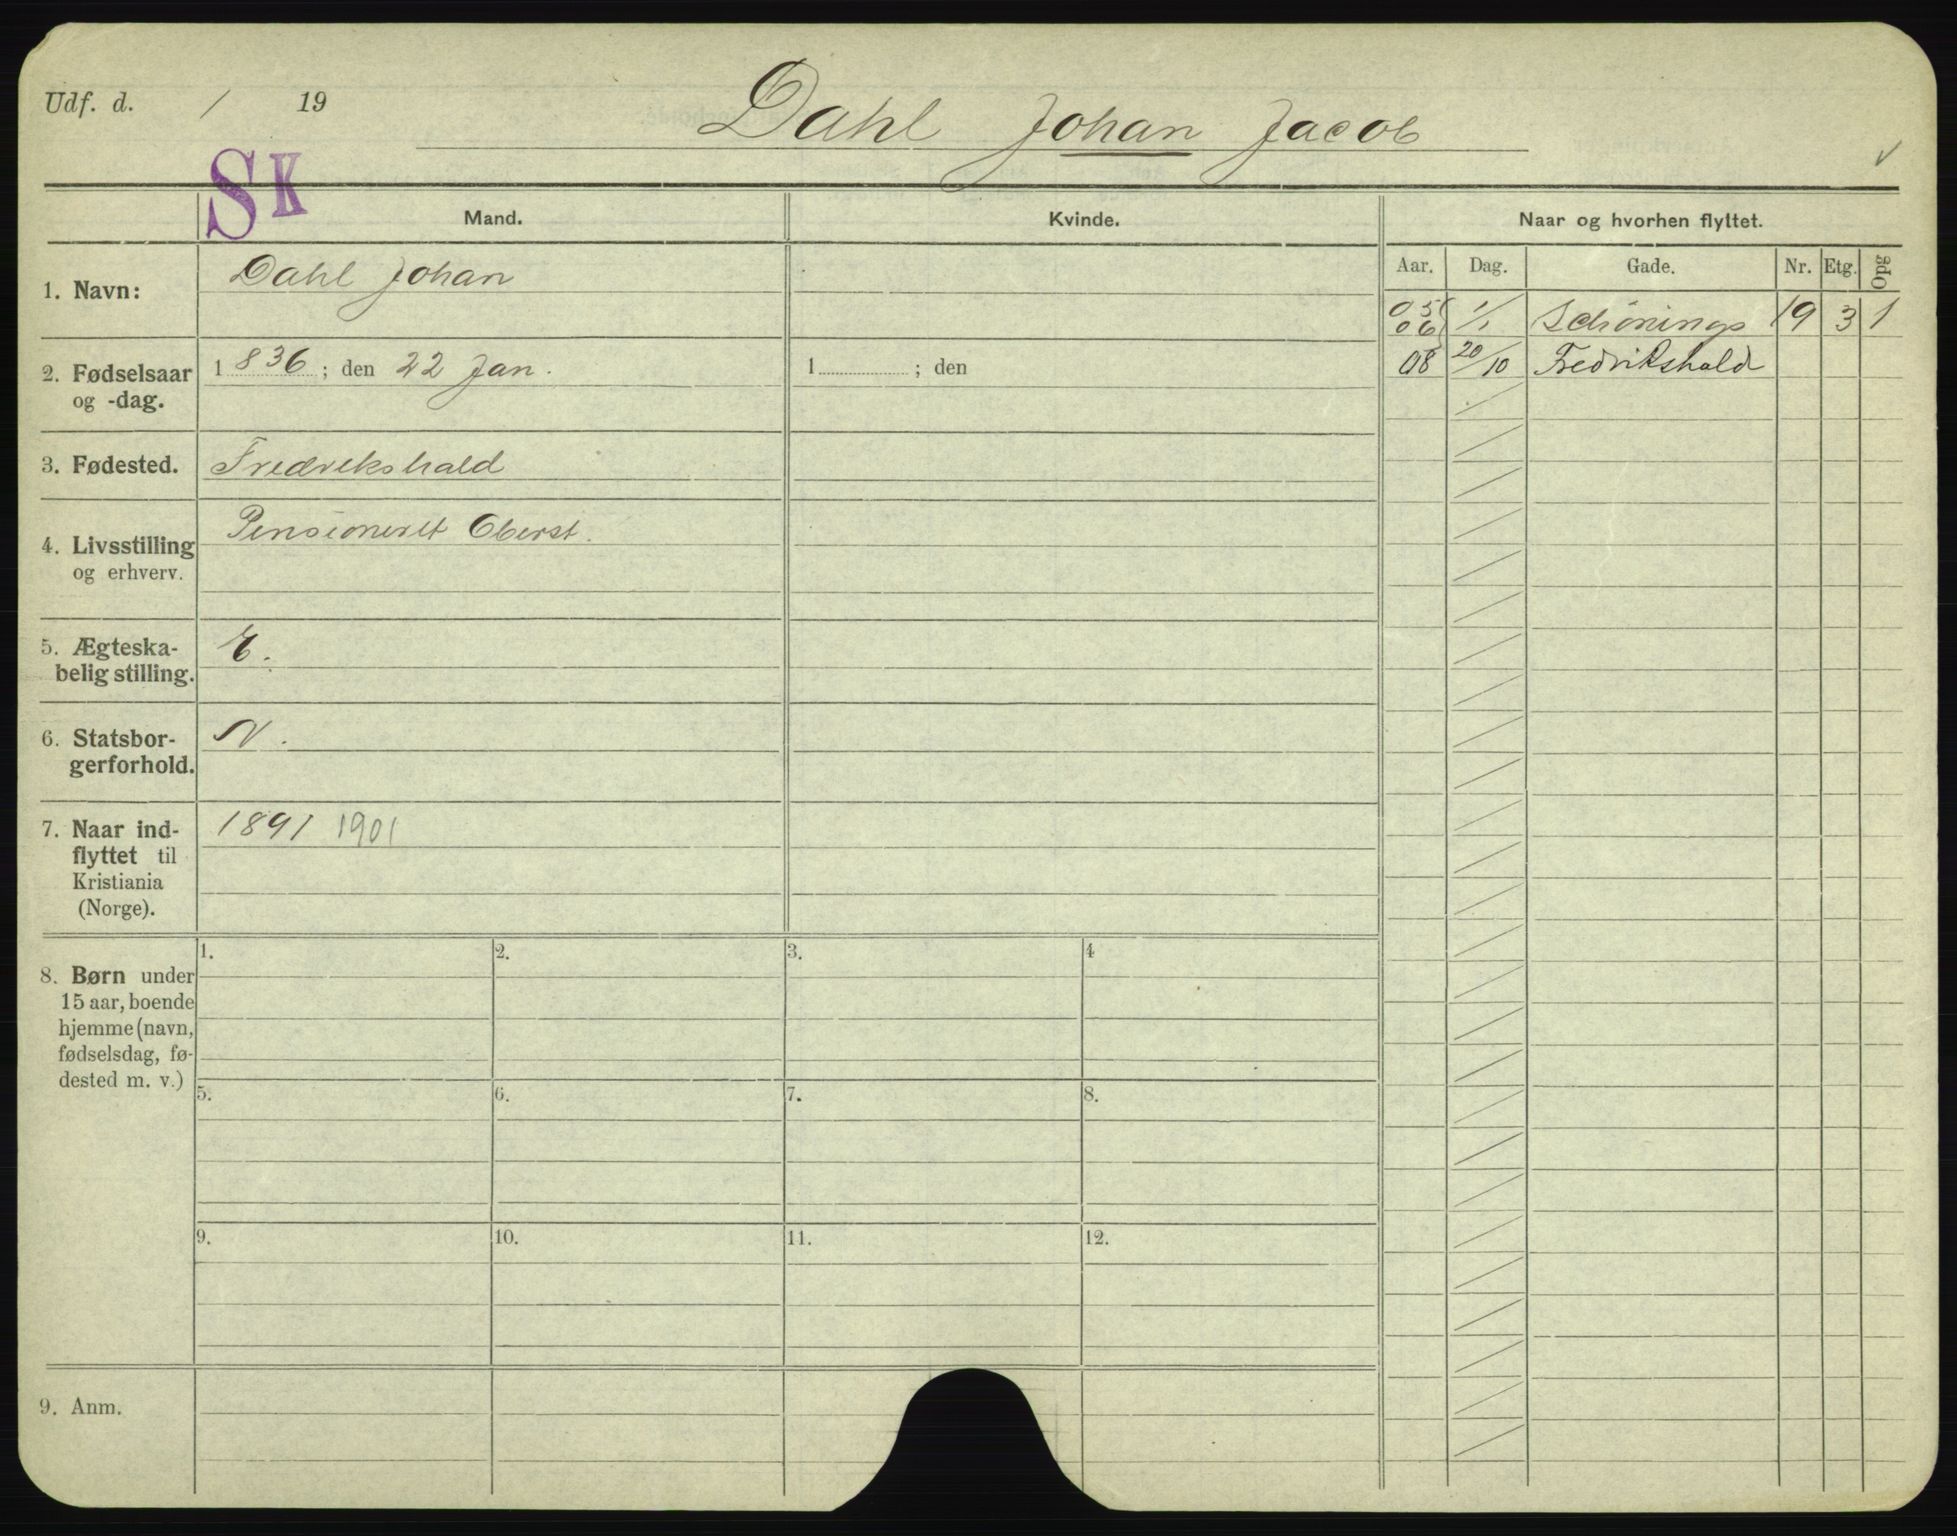 Udf. d. / 19
Dahl Johan Jacob
SK
Mand.
Kvinde.
Naar og hvorhen flyttet.
Aar. Dag. Gade. Nr. Etg. Opg
1. Navn:
Dahl Johan
05 06 1/1 Schønings 19 3 1
08 20/10 Fredrikshald
2. Fødselsaar
og -dag.
1836; den 22 Jan.
1 ; den
3. Fødested.
Fredrikshald
4. Livsstilling
og erhverv.
Pensioneret Oberst.
5. Ægteska-
belig stilling.
E.
6. Statsbor-
gerforhold.
N.
7. Naar ind-
flyttet til
Kristiania
(Norge).
1891 1901
8. Børn under
15 aar, boende
hjemme (navn,
fødselsdag, fø-
dested m. v.)
1. 2. 3. 4
5. 6. 7. 8.
9. 10. 11. 12.
9. Anm.